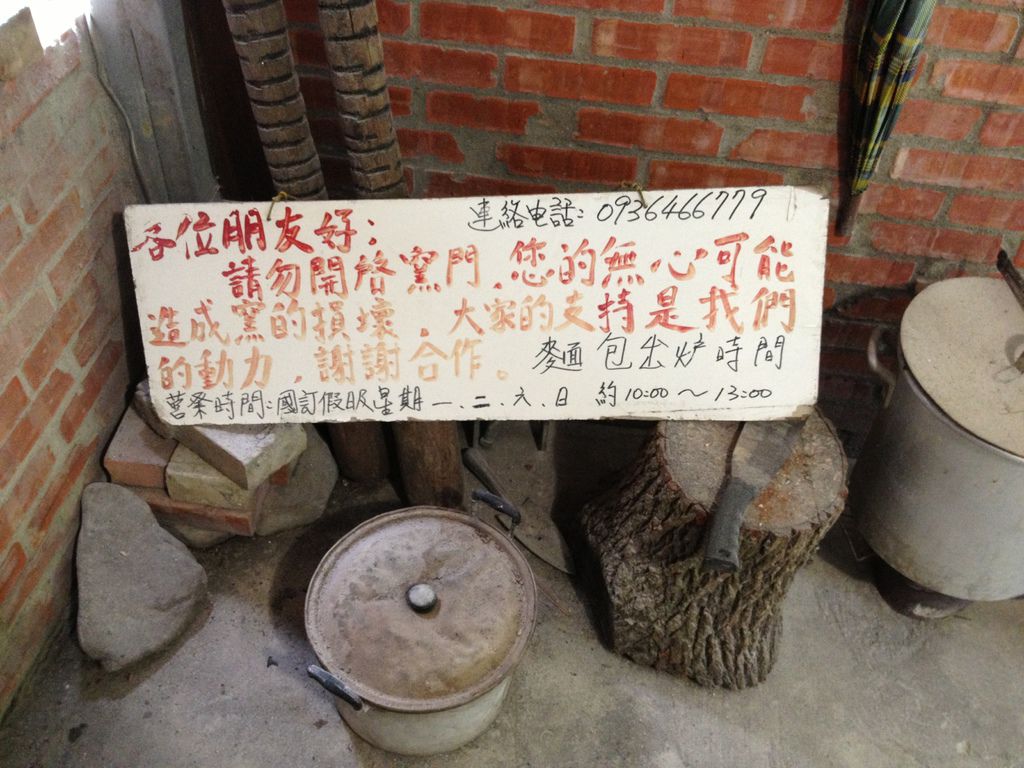 各位朋友好： 連絡电話：0936466779
請勿開啓窯門，您的無心可能
造成窯的損壞，大家的支持是我們
的動力，謝謝合作。 麥面包出炉時間
营業時間：國訂假日及星期一、二、六、日 約10:00～13:00